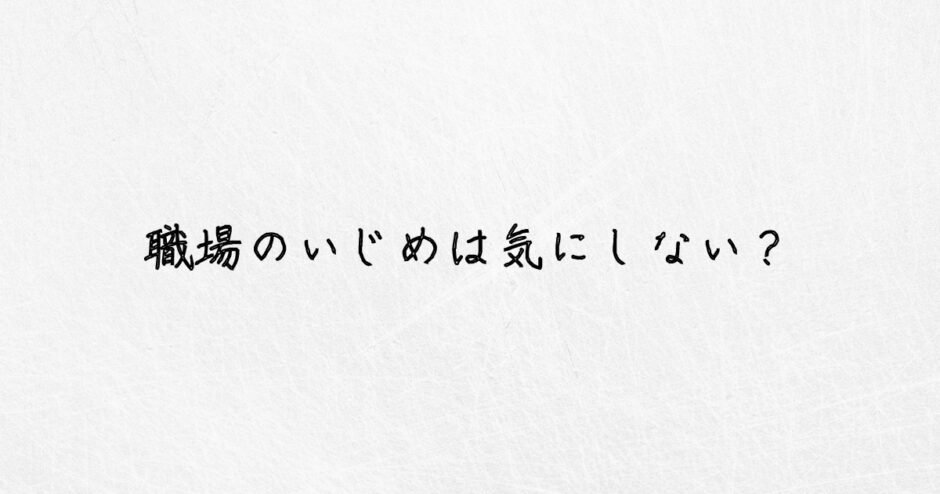 職場のいじめは気にしない？